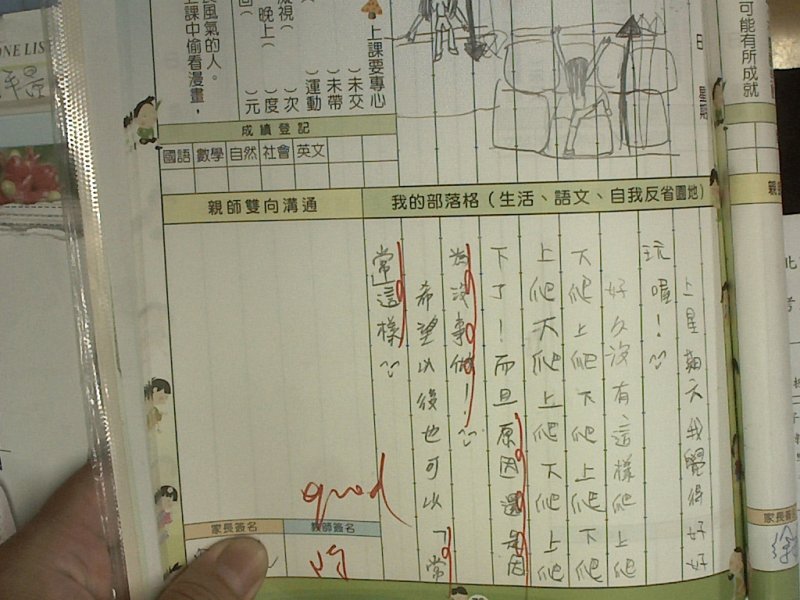 可能有所成就
日 星期
上課要專心
)未交
)未帶
)運動
)次
)度
)元
晚上(
風氣的人。
上課中偷看漫畫,
ONE LIS
成績登記
國語 數學 自然 社會 英文
我的部落格(生活、語文、自我反省園地)
親師雙向溝通
上星期天我覺得好好
玩喔!
好久沒有這樣爬上
爬下爬上爬下爬
上爬下爬上爬下爬上爬
下了!而且原因還是因
為沒事做!
希望以後也可以「常
常」這樣
good
家長簽名
教師簽名
家長簽